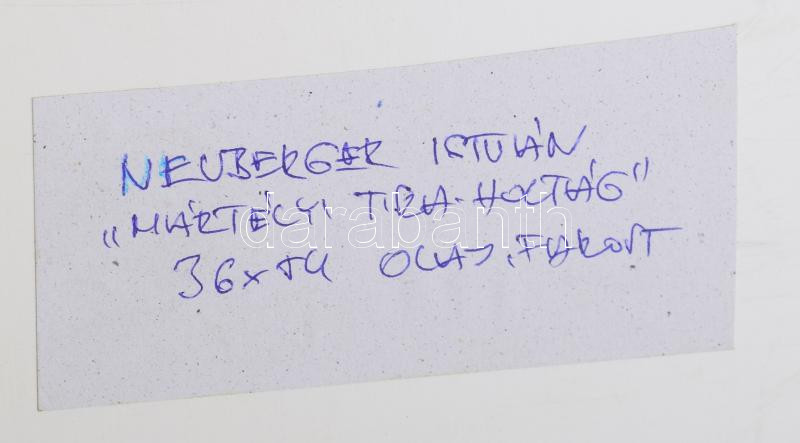 NEUBERGER ISTVÁN
„MÁRTÉLYI TISZA-HOLTÁG"
36x54 OLAJ, FAROST
darabanth